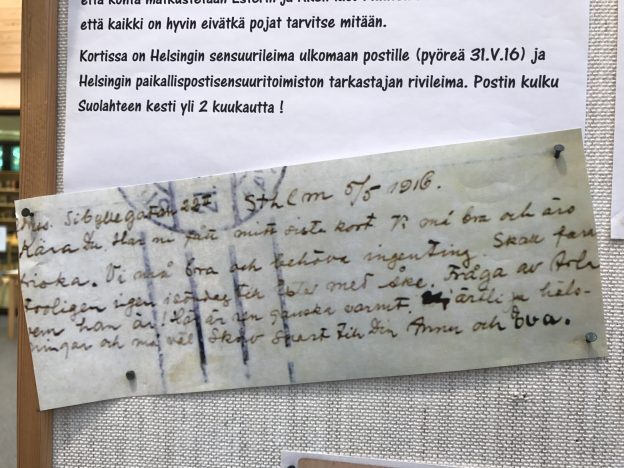 että kaikki on hyvin eivätkä pojat tarvitse mitään.
Kortissa on Helsingin sensuurileima ulkomaan postille (pyöreä 31.V.16) ja
Helsingin paikallispostisensuuritoimiston tarkastajan rivileima. Postin kulku
Suolahteen kesti yli 2 kuukautta !
Sibyllegatan Sthlm 5/5 1916.
Kära Du. Har ni fått mitt sista kort? må bra och äro
friska. Vi må bra och behöva ingenting. Skall fara
troligen igen söndag till med Åke. Fråga av
vem han är! är ganska varmt. häls-
ningar och må väl. Skriv snart till Din Anna och Eva.